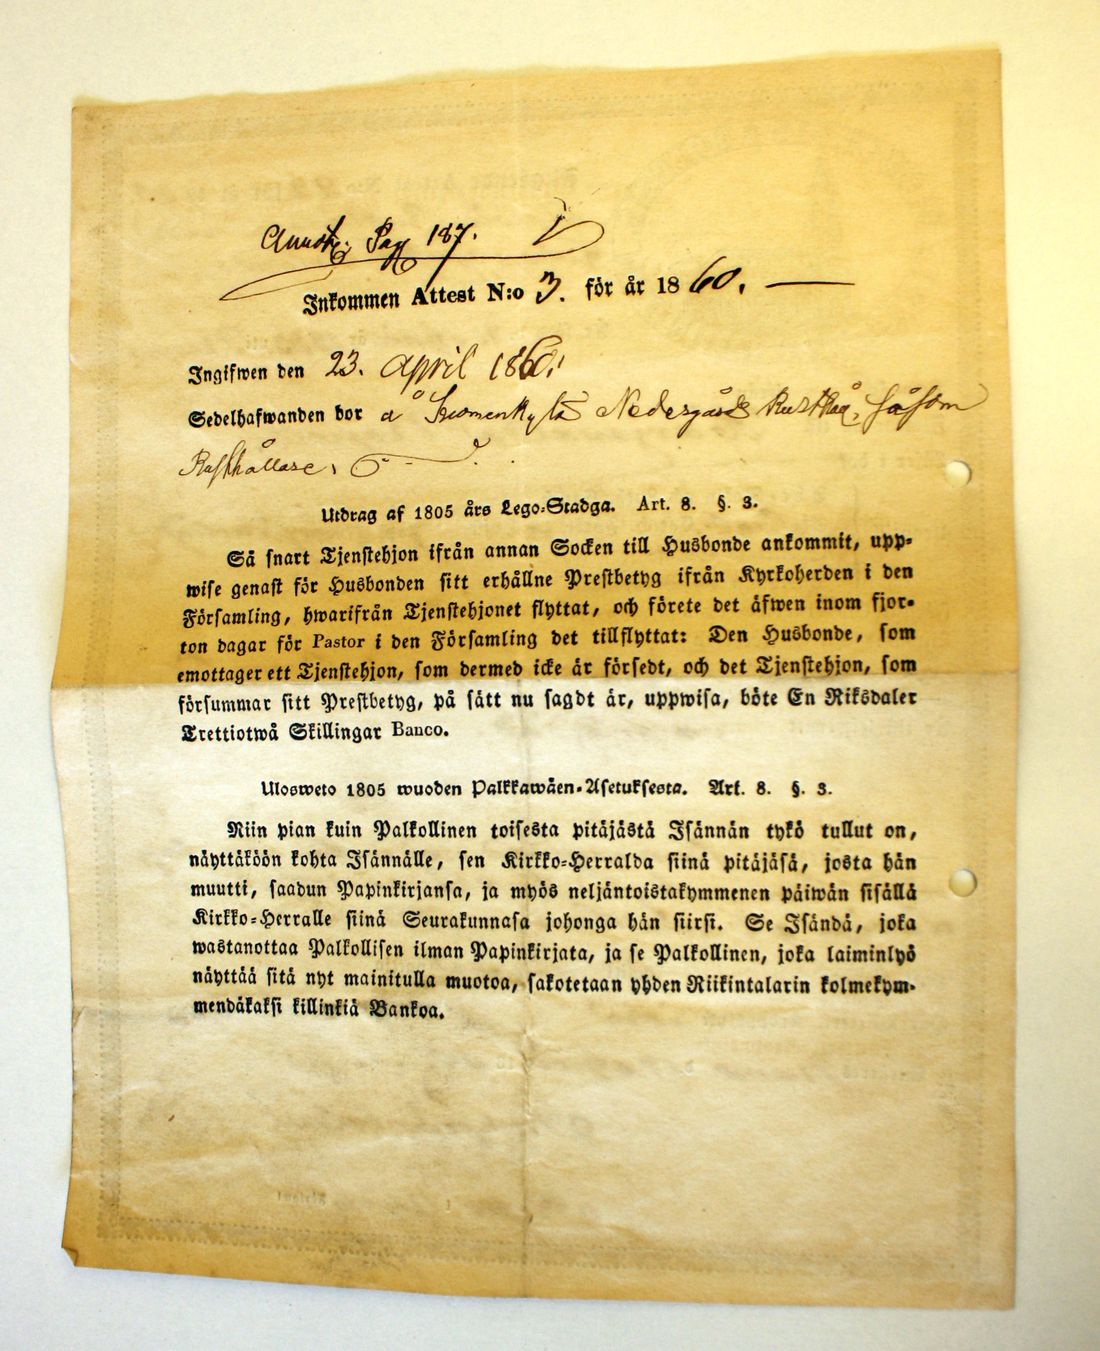 Annot. Pag 187.
Inkommen Attest N:o 3. för år 1860.
Ingifwen den 23. April 1860.
Sedelhafwanden bor å Suomenkylä Nedergårds Rusthåll, såsom
Rusthållare.
Utdrag af 1805 års Lego-Stadga. Art. 8. §. 3.
Så snart Tjenstehjon ifrån annan Socken till Husbonde ankommit, upp-
wise genast för Husbonden sitt erhållne Prestbetyg ifrån Kyrkoherden i den
Församling, hwarifrån Tjenstehjonet flyttat, och förete det äfwen inom fjor-
ton dagar för Pastor i den Församling det tillflyttat: Den Husbonde, som
emottager ett Tjenstehjon, som dermed icke är försedt, och det Tjenstehjon, som
försummar sitt Prestbetyg, på sätt nu sagdt är, uppwisa, böte En Riksdaler
Trettiotwå Skillingar Banco.
Ulosweto 1805 wuoden Palkkawäen-Asetuksesta. Art. 8. §. 3.
Niin pian kuin Palkollinen toisesta pitäjästä Isännän tykö tullut on,
näyttäköön kohta Isännälle, sen Kirkko-Herralda siinä pitäjäsä, josta hän
muutti, saadun Papinkirjansa, ja myös neljäntoistakymmenen päiwän sisällä
Kirkko-Herralle siinä Seurakunnasa johonga hän siirsi. Se Isändä, joka
wastanottaa Palkollisen ilman Papinkirjata, ja se Palkollinen, joka laiminlyö
näyttää sitä nyt mainitulla muotoa, sakotetaan yhden Riikintalarin kolmekym-
mendäkaksi killinkiä Bankoa.